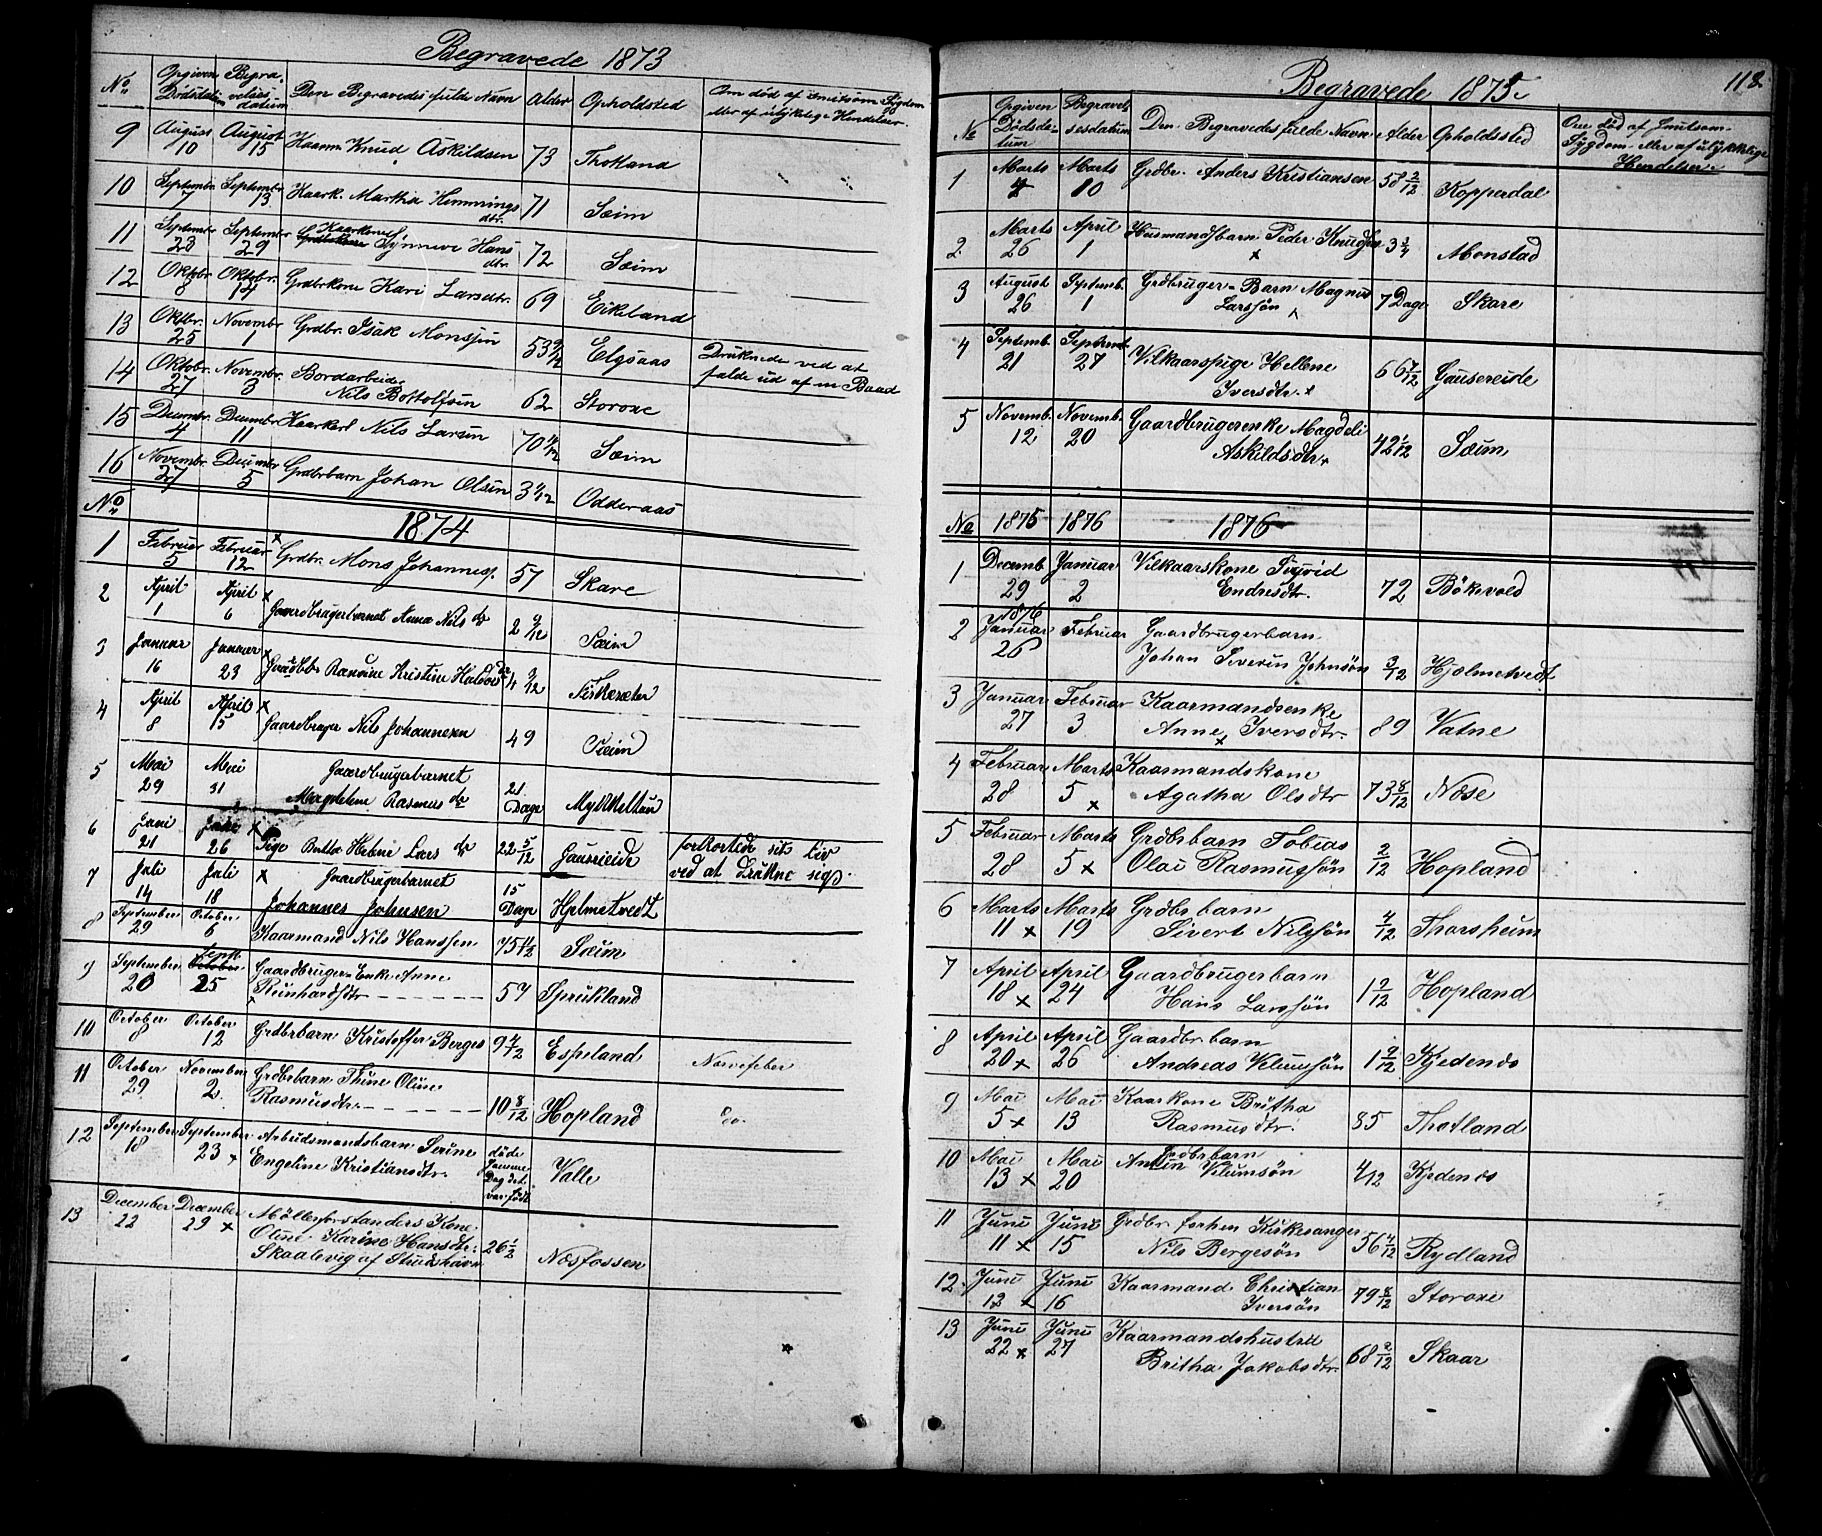 Begravede 1873
No | Opgiven Dødsdatum | Begravelsesdatum | Den Begravedes fulde Navn | Alder | Opholdsted | Om død af smitsom Sygdom eller af ulykkelige Hendelser
9 | August 10 | August 15 | Knud Askildsen | 73 | Thotland
10 | Septembr 7 | Septembr 13 | Kaark. Martha Hemmingsdtr. | 71 | Sæim
11 | September 23 | September 29 | Synneve Hansdtr. | 72 | Sæim
12 | Oktbr. 8 | Oktobr. 14 | Grdbrkone Kari Larsdtr. | 69 | Eikeland
13 | Oktbr. 25 | Novembr 1 | Grdbr. Isak Monssen | 53 | Elgsaas | Druknede ved at falde ud af en Baad
14 | Oktobr. 27 | Novembr. 3 | Bordarbeider Nils Bottolfsen | 62 | Storoxe
15 | Decembr. 4 | Decembr 11 | Kaarkarl Nils Larsen | 70 | Sæim
16 | Novembr. 27 | Decembr 5 | Grdbrbarn Johan Olsen | 3 | Odderaas
No 1874
1 | Februar 5 | Februar 12 | x Grdbr. Mons Johannes. | 57 | Skare
2 | April 1 | April 6 | x Gaardbrugerbarnet Anna Nils dr | 2 9/12 | Sæim
3 | Januar 16 | Januar 23 | x Kristine | 4 | Fiskesæter
4 | April 8 | April 15 | x Gaardbruger Nils Johannesen | 49 | Sæim
5 | Mai 29 | Mai 31 | Gaardbrugerbarnet Magdeline Rasmus dr | 21 Dage | Mykkeltun
6 | Juni 21 | Juni 26 | x Pige Lars dr | 22 5/12 | Gausereide | forkortede sit Liv ved at drukne sig
7 | Juli 14 | Juli 18 | x Gaardbrugerbarnet Johannes Johnsen | 15 Dage | Hjelmetvedt
8 | September 29 | October 6 | Kaarmand Nils Hanssen | 75 | Sæim
9 | September 20 | Septr. 25 | Gaardbruger-Enke Anne Reinhardsdtr | 57 | Sprukland
10 | October 8 | October 12 | Grdbrbarn Kristoffer Berges | 9 | Espeland | Nervefeber
11 | October 29 | November 2 | Grdbrbarn Thine Oline Rasmusdtr. | 10 8/12 | Hopland | do.
12 | September 18 | September 23 x | Arbeidsmandsbarn Serine Engeline Kristiansdtr. | døde samme Dag det var født | Valle
13 | December 22 | December 29 x | Møllerforstanders Kone Oline Karine Hansdtr. Skaalevig af | 26 1/2 | Næsfossen

118
Begravede 1875
No | Opgiven Dødsdatum | Begravelsesdatum | Den Begravedes fulde Navn | Alder | Opholdssted | Om død af smitsom Sygdom eller af ulykkelige Hendelser
1 | Marts 4 | Marts 10 | Grdbr. Anders Kristiansen | 58 2/12 | Kopperdal
2 | Marts 26 | April 1 | Husmandsbarn Peder Knudsen x | 3 3/4 | Monstad
3 | August 26 | Septemb. 1 | Grdbruger-Barn Magnus Larssøn x | 7 Dage | Skare
4 | Septemb. 21 | Septemb. 27 | Vilkaarspige Hellene Iversdtr. x | 66 7/12 | Gausereide
5 | Novemb. 12 | Novemb. 20 | Gaardbrugerenke Magdeli Askildsdtr. | 42 1/12 | Sæim
No | 1875 | 1876 | 1876
1 | Decemb. 29 | Januar 2 | Vilkaarskone Sigrid Endresdtr. | 72 | Bökevold
2 | 1876 Januar 26 | Februar | Gaardbrugerbarn Johan Severin Johnsøn | 3/12 | Hjelmetvedt
3 | Januar 27 | Februar 3 | Kaarmandsenke Anne x Iversdtr. | 89 | Vatne
4 | Februar 28 | Marts 5 x | Kaarmandskone Agatha Olsdtr | 73 8/12 | Næse
5 | Februar 28 | Marts 5 x | Grdbrbarn Tobias Olai Rasmussøn | 2/12 | Hopland
6 | Marts 11 x | Marts 19 | Grdbrbarn Sivert Nilssøn | 4/12 | Thorsheim
7 | April 18 x | April 24 | Gaardbrugerbarn Hans Larssøn | 1 2/12 | Hopland
8 | April 20 x | April 26 | Gaardbr.barn Andreas Velumsøn | 1 9/12 | Kjedenes
9 | Mai 5 x | Mai 13 | Kaarkone Britha Rasmusdtr. | 85 | Thotland
10 | Mai 13 x | Mai 20 | Grdbrbarn Anton Velumsøn | 4/12 | Kjedenes
11 | Juni 11 x | Juni 15 | Grdbr. forhen Kirkesanger Nils Bergesøn | 56 4/12 | Rydland
12 | Juni 12 x | Juni 16 | Kaarmand Christian Iversøn | 79 8/12 | Storoxe
13 | Juni 22 x | Juni 27 | Kaarmandshustru Britha Jakobsdtr. | 68 2/12 | Skaar